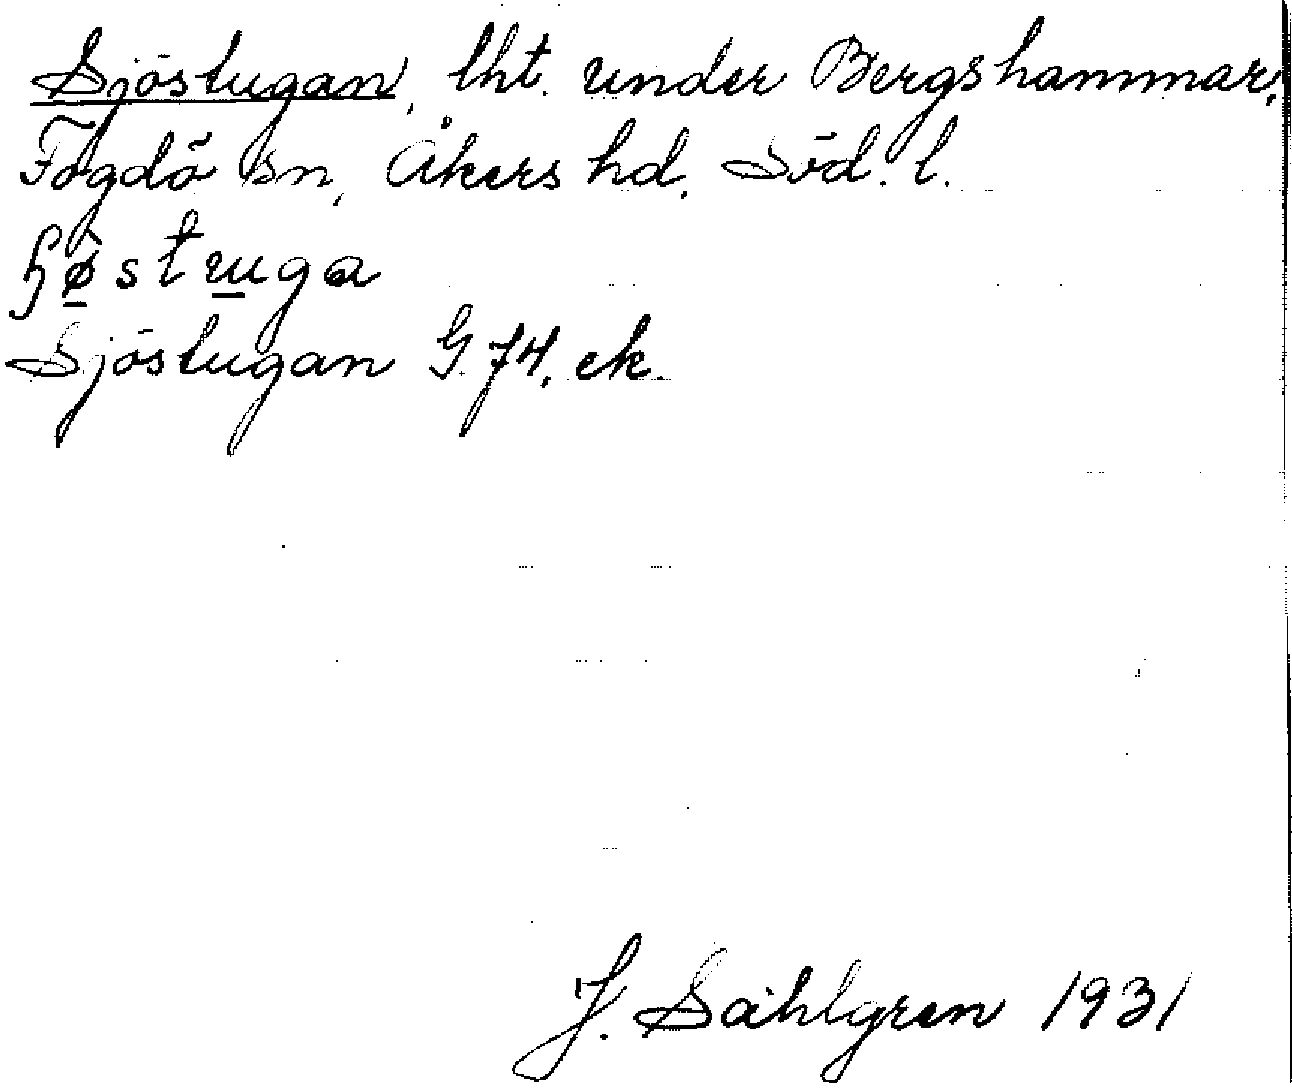 Sjöstugan, lht. under Bergshammar,
Fogdö sn, Åkers hd. Söd. l.
ɧø̀stuga
Sjöstugan G 74. ek.
J. Sahlgren 1931